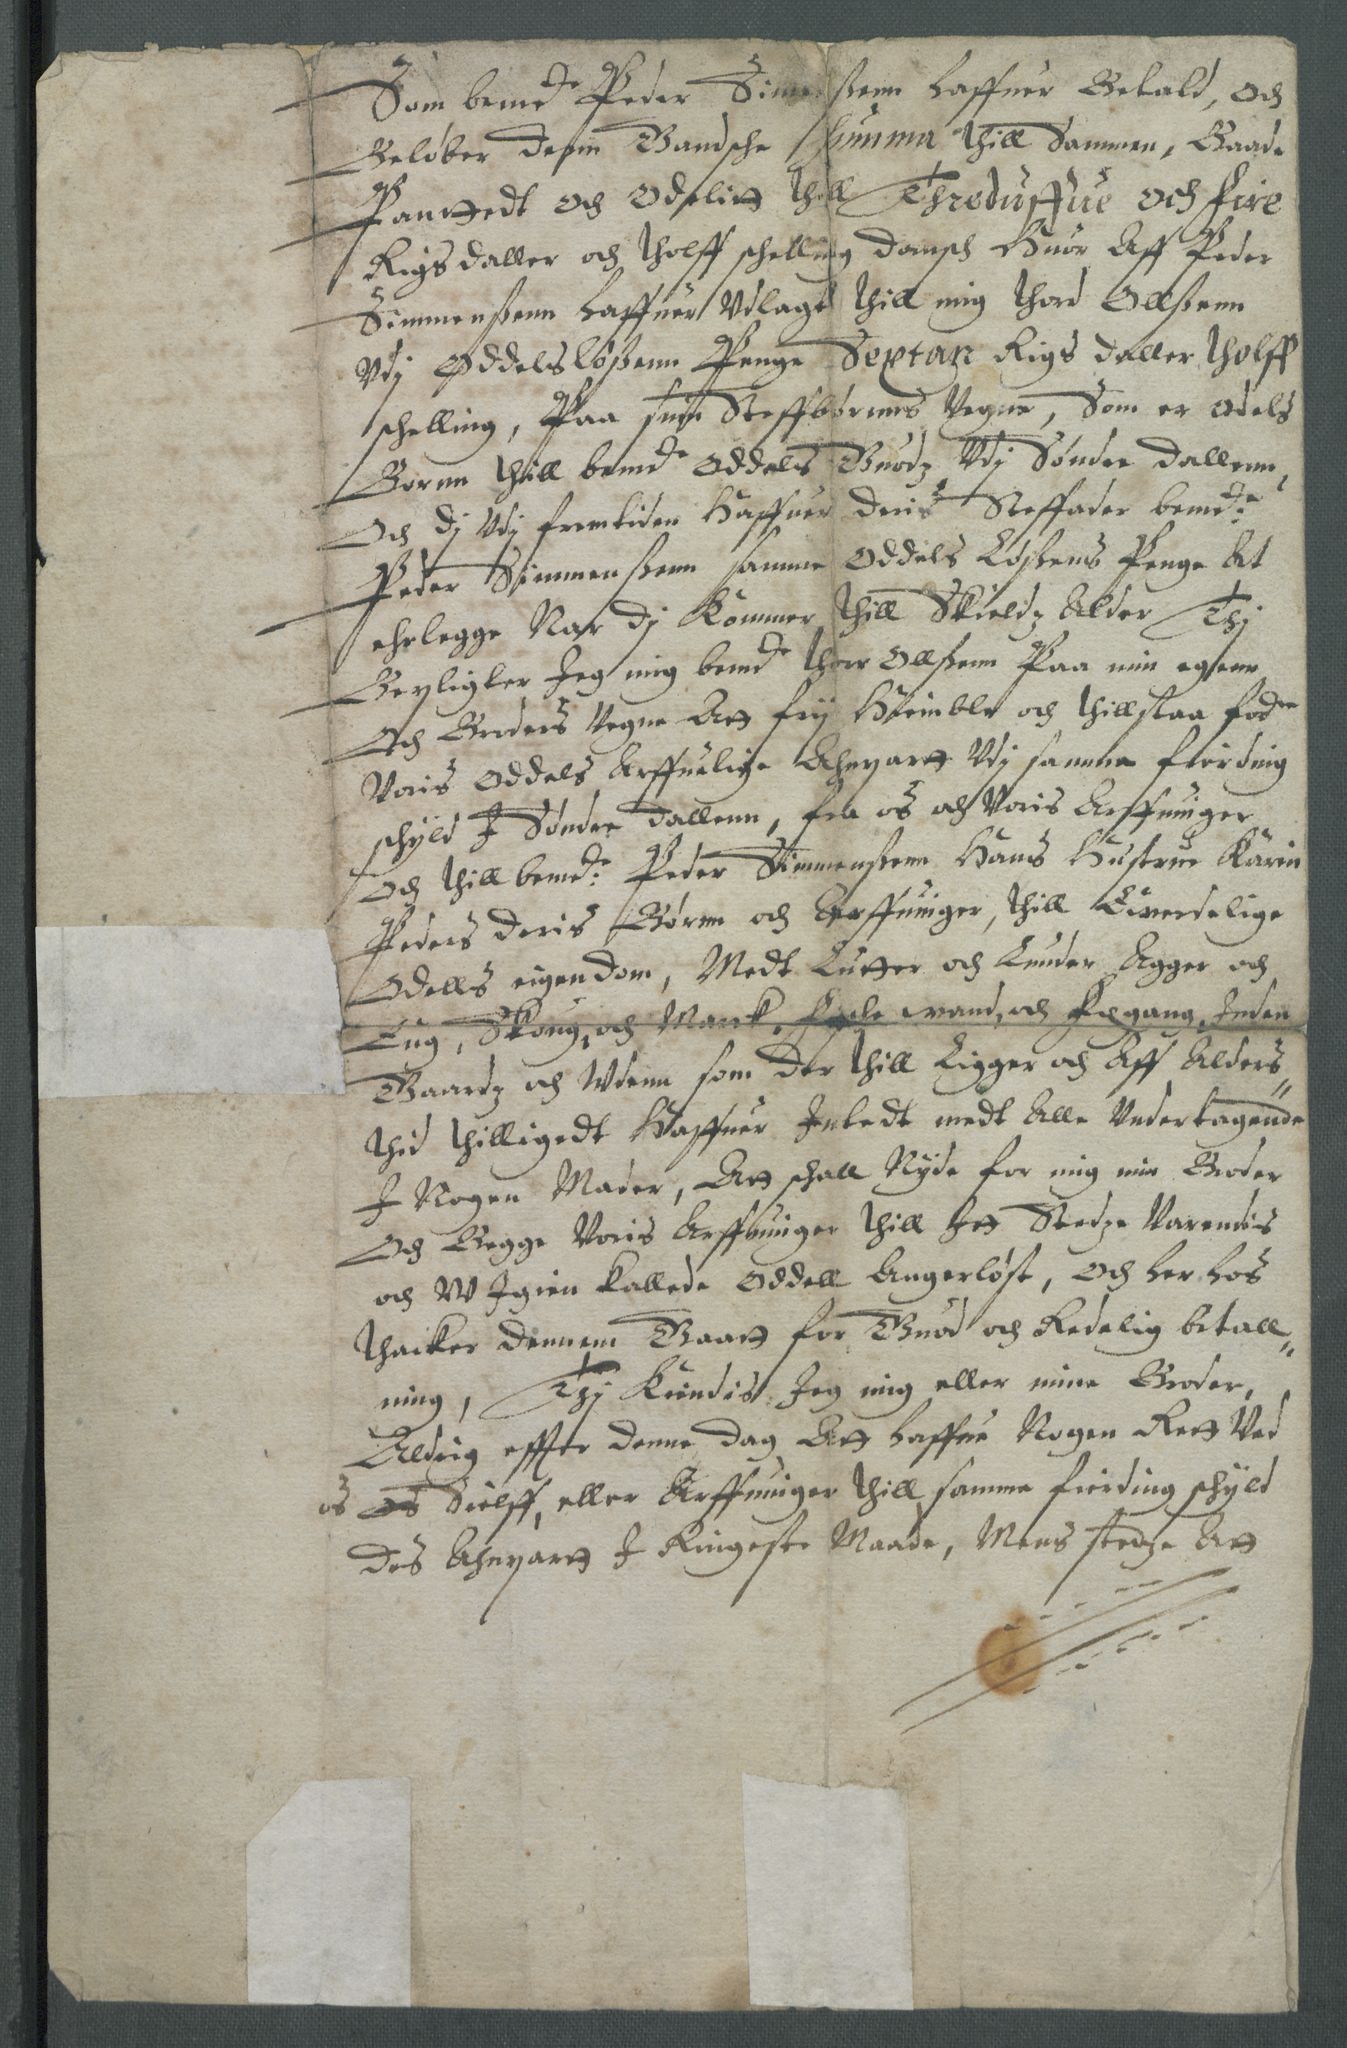 Som bemdte Peder Simenßenn haffuer Betald, och
Beløber denn Gandsche Summa thill Sammen, Baade
Panttedt och Odelitt thill Threduffue och fire
Rigsdaller och tholff schelling dansch Huor Aff Peder
Simmenßenn haffuer Vdlagt thill mig thord Ollßenn
Vdj Øddelsløßenn Penge Sextan Rigs daller tholff
schelling, Paa sinn Steffbørnns Vegne, Som er Odels
Børnn thill bemdte Oddels Guodz Vdj Søndre dallenn,
Och dj Vdj fremtiden Haffuer deris Steffader bemdte:
Peder Simmenßenn samme Oddels Løßens Penge At
erlegge Nar dj Kommer thill Skields Alder Thj
Bepligter Jeg mig bemdte thor Ollßenn Paa min egenn
Och Brøders Vegne Att frij Hiemble och thillstaa fodne
Voris Oddels Arffuelige Anpartt Vdj samme fierding
schyld J Søndre dallenn, fra os och Voris Arffuinger
Och thill bemdte: Peder Simmenßenn Hans Hustrue Karin
Peders deris Børnn och Arffuinger, thill Euerdelige
Odells eigendom, Medt Lutter och Lunder Agger och
Eng, Skoug, och Marck, fische vand, och fægang, Inden
Gaardz och Wdenn som der thill Ligger och Aff Alders"
thid thilligedt Haffuer Intedt medt Alle Vndertagende
J Nogen Mader, Att schall Nyde for mig min Broder
Och Begge Voris Arffuinger thill Jtt Stedze Varendis
och W Igien kallede Oddell Angerløst, Och her hos
thacker dennem Gaatt for Guod och Redelig betall"
ning, Thj Kiendis Jeg mig eller mine Brøder,
Aldrig effter denne dag Att haffue Nogen Rett Ved
os Sielff, eller Arffuinger thill samme fierding schyld
des Anpartt J Ringeste Maade, Mens stedze Att